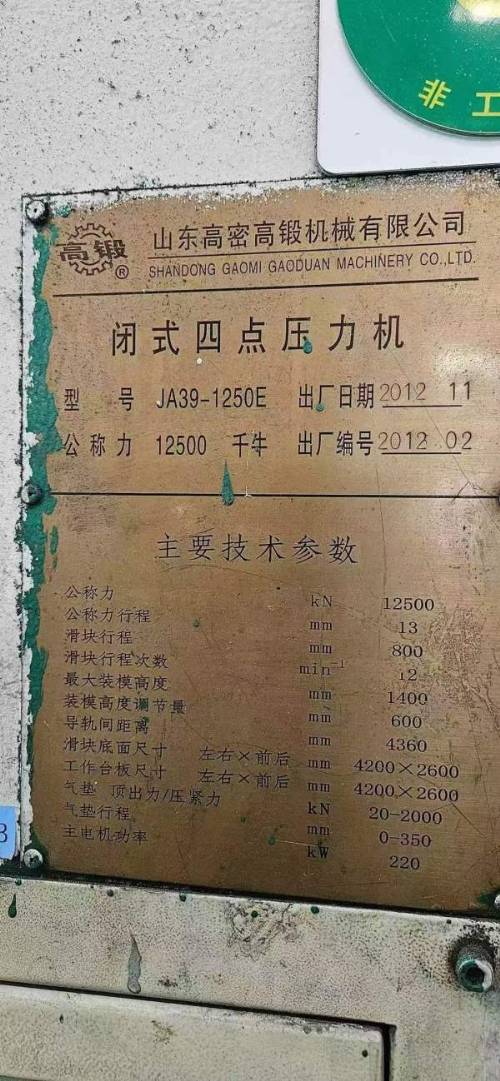 非工
高锻®
山东高密高锻机械有限公司
SHANDONG GAOMI GAODUAN MACHINERY CO.,LTD.
闭式四点压力机
型 号 JA39-1250E 出厂日期 2012 11
公称力 12500 千牛 出厂编号 2012 02
主要技术参数
公称力 kN 12500
公称力行程 mm 13
滑块行程 mm 800
滑块行程次数 min⁻¹ 12
最大装模高度 mm 1400
装模高度调节量 mm 600
导轨间距离 mm 4360
滑块底面尺寸 左右×前后 mm 4200×2600
工作台板尺寸 左右×前后 mm 4200×2600
气垫 顶出力/压紧力 kN 20-2000
气垫行程 mm 0-350
主电机功率 kW 220